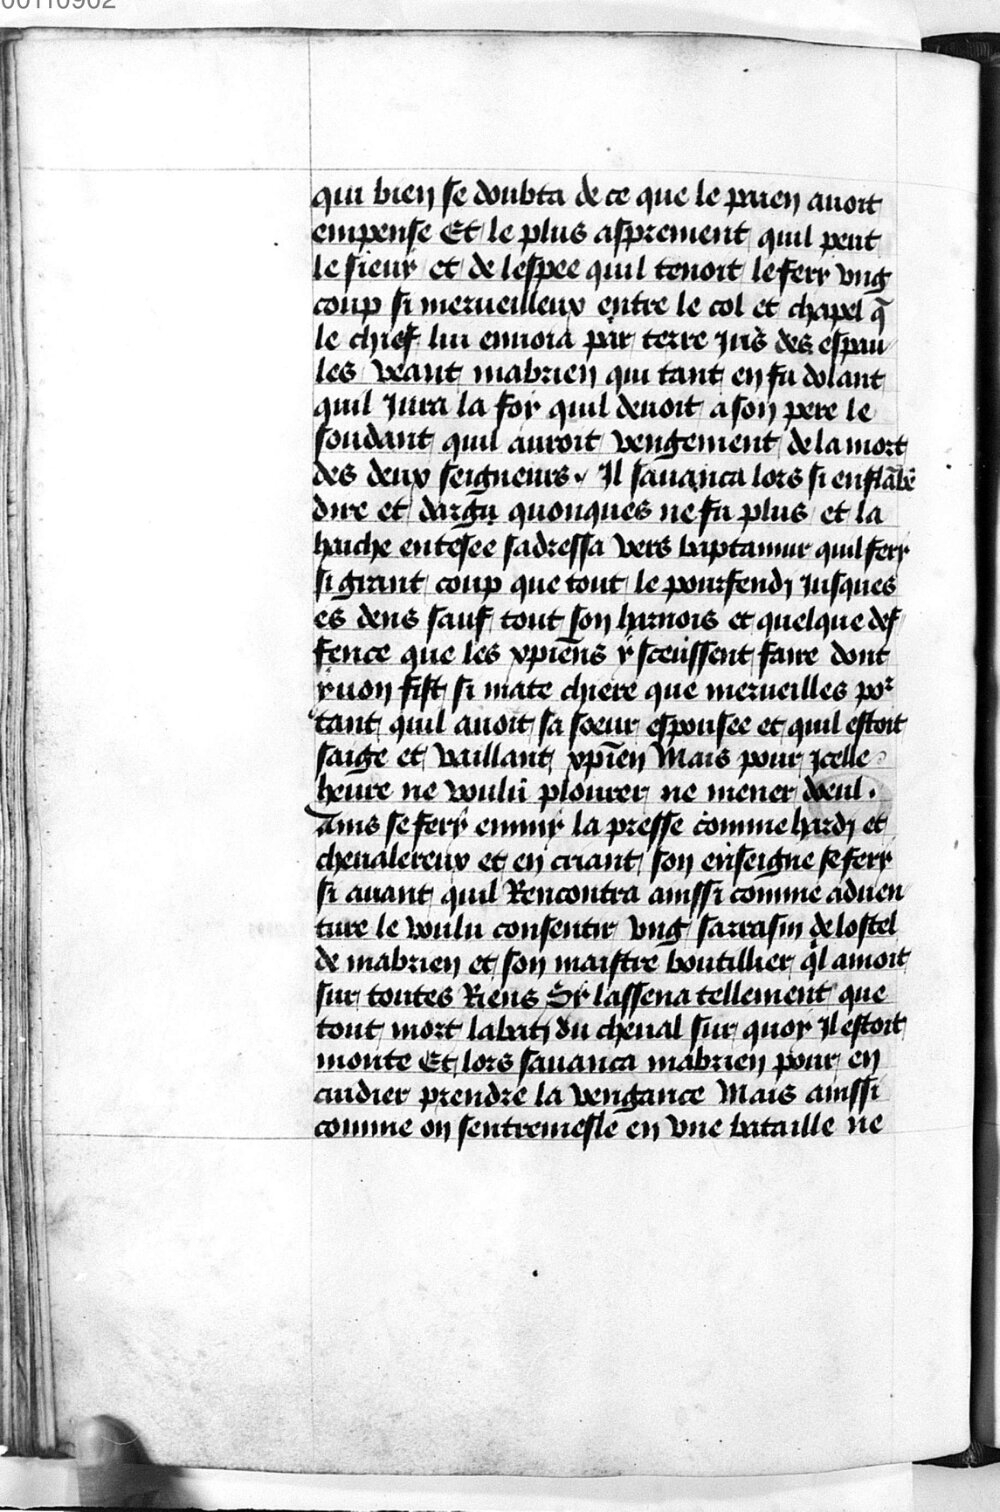 00110902
qui bien se doubta de ce que le paien auoit
empense Et le plus asprement quil peut
le sieuy et de lespee quil tenoit le fery vng
coup si merueilleux entre le col et chapel q̄
le chief lui enuoia par terre jus des espau
les veant mabrien qui tant en fu dolant
quil Jura la foy quil deuoit a son pere le
soudant quil auroit vengement de la mort
des deux seigneurs. Il sauanca lors si enflābe
dire et dargu quonques ne fu plus et la
haiche entesee sadressa vers baptamur quil fery
si grant coup que tout le pourfendj Jusques
es dens sauf tout son harnois et quelque def
fence que les xpiēns y sceussent faire dont
yuon fist si mate chiere que merueilles por
tant quil auoit sa soeur espousee et quil estoit
saige et vaillant xpiēn Mais pour jcelle
heure ne voulu plourer ne mener doeul.
Ains se fery enmy la presse comme hardj et
cheualereux et en criant son enseigne se fery
si auant quil Rencontra ainssi comme aduen
ture le voulu consentir vng sarrasin de lostel
de mabrien et son maistre boutillier ql amoit
sur toutes Riens Sy lassena tellement que
tout mort labatj du cheual sur quoy Jl estoit
monte Et lors sauanca mabrien pour en
cuidier prendre la vengance Mais ainssi
comme on sentremesle en vne bataille ne